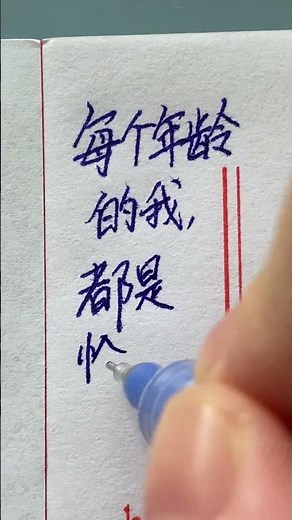 每个年龄
的我,
都是